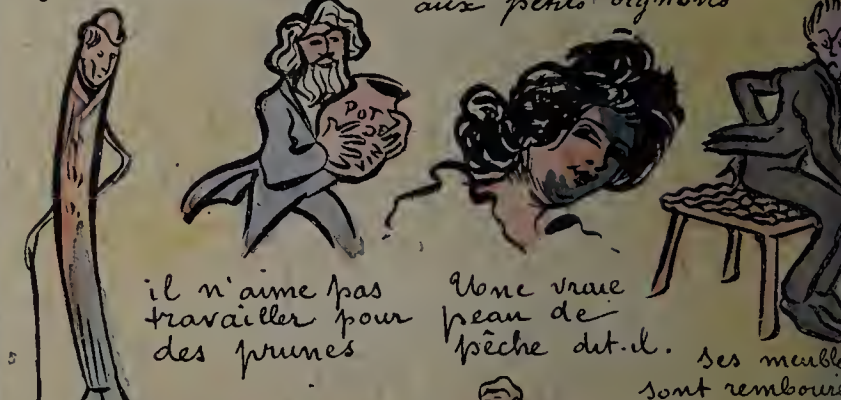 aux petits oignons
POT
DE
VIN
il n'aime pas
travailler pour
des prunes
Une vraie
peau de
pêche dit-il.
ses
sont